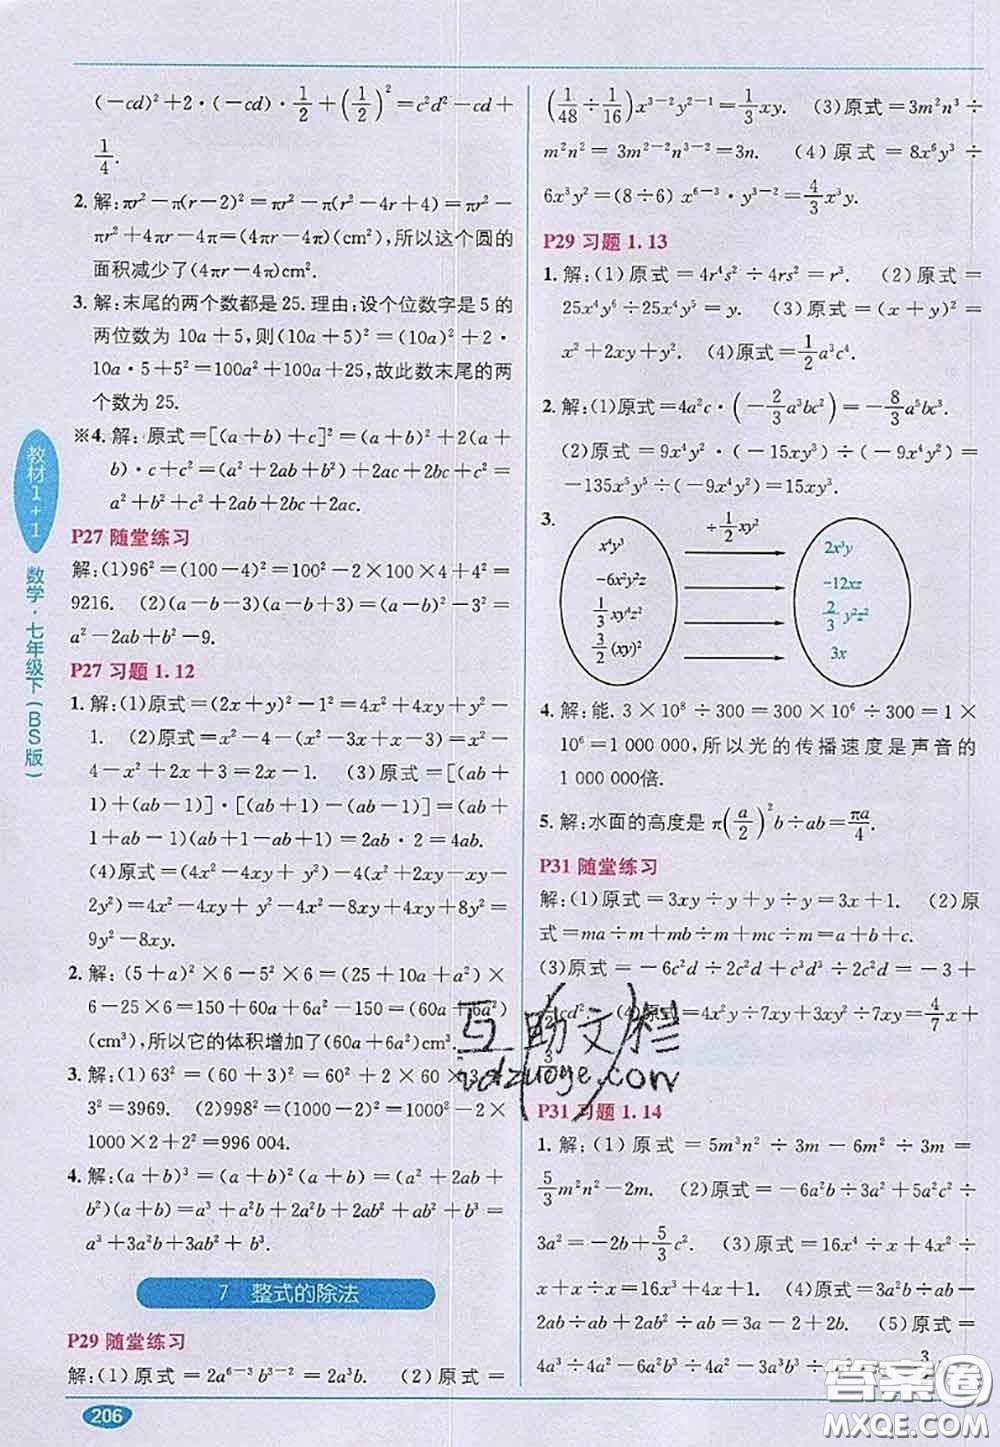 (-cd)²+2·(-cd)·1/2+(1/2)²=c²d²-cd+
1/4.
2. 解:πr²-π(r-2)²=πr²-π(r²-4r+4)=πr²-
πr²+4πr-4π=(4πr-4π)(cm²),所以这个圆的
面积减少了(4πr-4π)cm².
3. 解:末尾的两个数都是 25. 理由:设个位数字是 5 的
两位数为 10a+5,则(10a+5)²=(10a)²+2·
10a·5+5²=100a²+100a+25,故此数末尾的两
个数为 25.
※4. 解:原式=[(a+b)+c]²=(a+b)²+2(a+b)
·c+c²=(a²+2ab+b²)+2ac+2bc+c²=
a²+b²+c²+2ab+2bc+2ac.
P27 随堂练习
解:(1)96²=(100-4)²=100²-2×100×4+4²=
9216. (2)(a-b-3)(a-b+3)=(a-b)²-3²=
a²-2ab+b²-9.
P27 习题 1.12
1. 解:(1)原式=(2x+y)²-1²=4x²+4xy+y²-
1. (2)原式=x²-4-(x²-2x+x-2)=x²
-4-x²+2x-x+2=x-2. (3)原式=[(ab+
1)+(ab-1)]·[(ab+1)-(ab-1)]=(ab+
1+ab-1)(ab+1-ab+1)=2ab·2=4ab.
(4)原式=(4x²-4xy+y²)-4(x²+2xy-xy-
2y²)=4x²-4xy+y²-4x²-8xy+4xy+8y²=
9y²-8xy.
2. 解:(5+a)²×6-5²×6=(25+10a+a²)×
6-25×6=150+60a+6a²-150=(60a+6a²)
(cm³),所以它的体积增加了(60a+6a²)cm³.
3. 解:(1)63²=(60+3)²=60²+2×60×3+
3²=3969. (2)998²=(1000-2)²=1000²-2×
1000×2+2²=996 004.
4. 解:(a+b)³=(a+b)²(a+b)=(a²+2ab+
b²)(a+b)=a³+a²b+2a²b+2ab²+ab²+b³=
a³+3a²b+3ab²+b³.
7 整式的除法
P29 随堂练习
解:(1)原式=2a⁶⁻³b³⁻²=2a³b. (2)原式=
(1/48÷1/16)x³⁻²y²⁻¹=1/3xy. (3)原式=3m²n³÷
m²n²=3m²⁻²n³⁻²=3n. (4)原式=8x⁶y³÷
6x³y²=(8÷6)x⁶⁻³·y³⁻²=4/3x³y.
P29 习题 1.13
1. 解:(1)原式=4r⁴s²÷4rs²=r³. (2)原式=
25x⁴y⁶÷25x⁴y⁵=y. (3)原式=(x+y)²=
x²+2xy+y². (4)原式=1/2a³c⁴.
2. 解:(1)原式=4a²c·(-2/3a³bc²)=-8/3a⁵bc³.
(2)原式=9x⁴y²·(-15xy³)÷(-9x⁴y²)=
-135x⁵y⁵÷(-9x⁴y²)=15xy³.
3.
÷1/2xy²
x⁴y³ 2x³y
-6x²y²z -12xz
1/3xy⁴z² 2/3y²z²
3/2(xy)² 3x
4. 解:能. 3×10⁸÷300=300×10⁶÷300=1×
10⁶=1 000 000,所以光的传播速度是声音的
1 000 000倍.
5. 解:水面的高度是π(a/2)²b÷ab=πa/4.
P31 随堂练习
解:(1)原式=3xy÷y+y÷y=3x+1. (2)原
式=ma÷m+mb÷m+mc÷m=a+b+c.
(3)原式=-6c²d÷2c²d+c³d³÷2c²d=-3+
cd². (4)原式=4x²y÷7xy+3xy²÷7xy=4/7x+
P31 习题 1.14
1. 解:(1)原式=5m³n²÷3m-6m²÷3m=
5/3m²n²-2m. (2)原式=-6a²b÷3a²+5a²c²÷
3a²=-2b+5/3c². (3)原式=16x⁴÷x+4x²÷
x+x÷x=16x³+4x+1. (4)原式=3a²b÷ab-
2ab÷ab+2ab²÷ab=3a-2+2b. (5)原式=
4a³÷4a³-6a²b²÷4a³+12a⁴b³÷4a³=1-3
教材1+1
数学·七年级下(BS版)
206
互助文栏
vdzuoye.com
答案圈
MXQE.COM